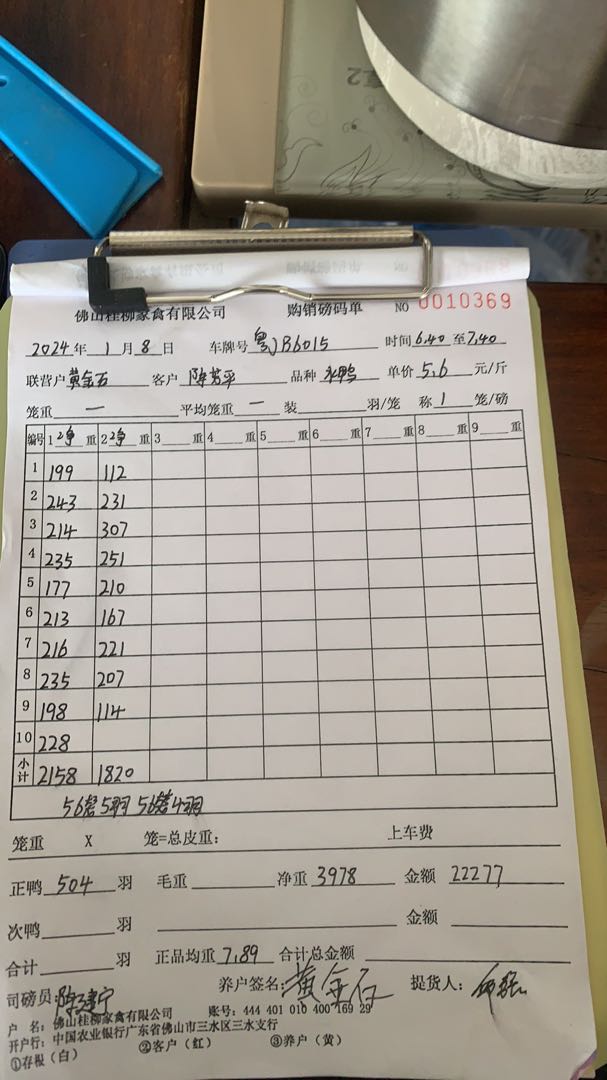 佛山桂柳家禽有限公司 购销磅码单 NO 0010369
2024年 1月 8日 车牌号 粤JB6015 时间 6.40 至 7.40
联营户 黄金石 客户 陈芳平 品种 水鸭 单价 5.6 元/斤
笼重 一 平均笼重 一 装 羽/笼 称 1 笼/磅
编号 1 净 重 2 净 重 3 重 4 重 5 重 6 重 7 重 8 重 9 重
1 199 112
2 243 231
3 214 307
4 235 251
5 177 210
6 213 167
7 216 221
8 235 207
9 198 114
10 228
小计 2158 1820
56笼5羽 56笼4羽
笼重 X 笼=总皮重： 上车费
正鸭 504 羽 毛重 净重 3978 金额 22277
次鸭 羽 金额
合计 羽 正品均重 7.89 合计总金额
司磅员： 陈建宁 养户签名： 黄金石 提货人：
户 名：佛山桂柳家禽有限公司 账号：444 401 010 400 169 29
开户行：中国农业银行广东省佛山市三水区三水支行
①存根（白） ②客户（红） ③养户（黄）